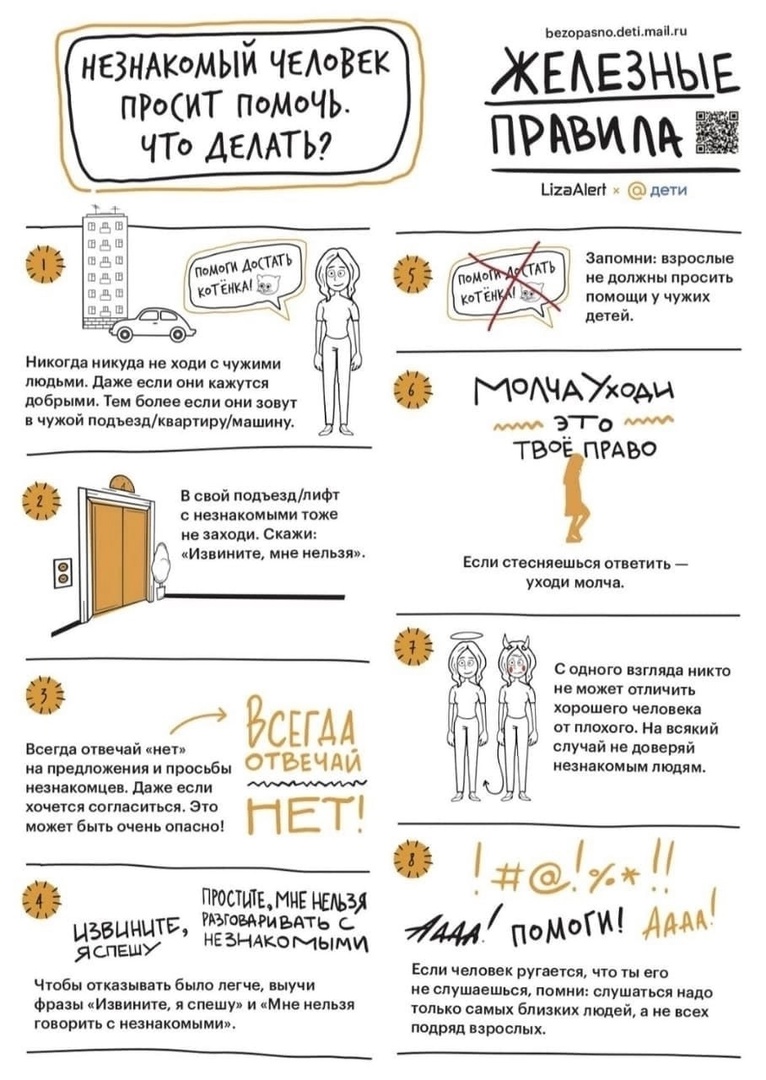 НЕЗНАКОМЫЙ ЧЕЛОВЕК
ПРОСИТ ПОМОЧЬ.
ЧТО ДЕЛАТЬ?
bezopasno.deti.mail.ru
ЖЕЛЕЗНЫЕ
ПРАВИЛА
LizaAlert × @ дети
1
ПОМОГИ ДОСТАТЬ
КОТЁНКА!
Никогда никуда не ходи с чужими
людьми. Даже если они кажутся
добрыми. Тем более если они зовут
в чужой подъезд/квартиру/машину.
2
В свой подъезд/лифт
с незнакомыми тоже
не заходи. Скажи:
«Извините, мне нельзя».
3
Всегда отвечай «нет»
на предложения и просьбы
незнакомцев. Даже если
хочется согласиться. Это
может быть очень опасно!
ВСЕГДА
ОТВЕЧАЙ
НЕТ!
4
ИЗВИНИТЕ,
Я СПЕШУ
ПРОСТИТЕ, МНЕ НЕЛЬЗЯ
РАЗГОВАРИВАТЬ С
НЕЗНАКОМЫМИ
Чтобы отказывать было легче, выучи
фразы «Извините, я спешу» и «Мне нельзя
говорить с незнакомыми».
5
ПОМОГИ ДОСТАТЬ
КОТЁНКА!
Запомни: взрослые
не должны просить
помощи у чужих
детей.
6
МОЛЧА УХОДИ
ЭТО
ТВОЁ ПРАВО
Если стесняешься ответить —
уходи молча.
7
С одного взгляда никто
не может отличить
хорошего человека
от плохого. На всякий
случай не доверяй
незнакомым людям.
8
!#@!%*!!
АААА! ПОМОГИ! АААА!
Если человек ругается, что ты его
не слушаешься, помни: слушаться надо
только самых близких людей, а не всех
подряд взрослых.